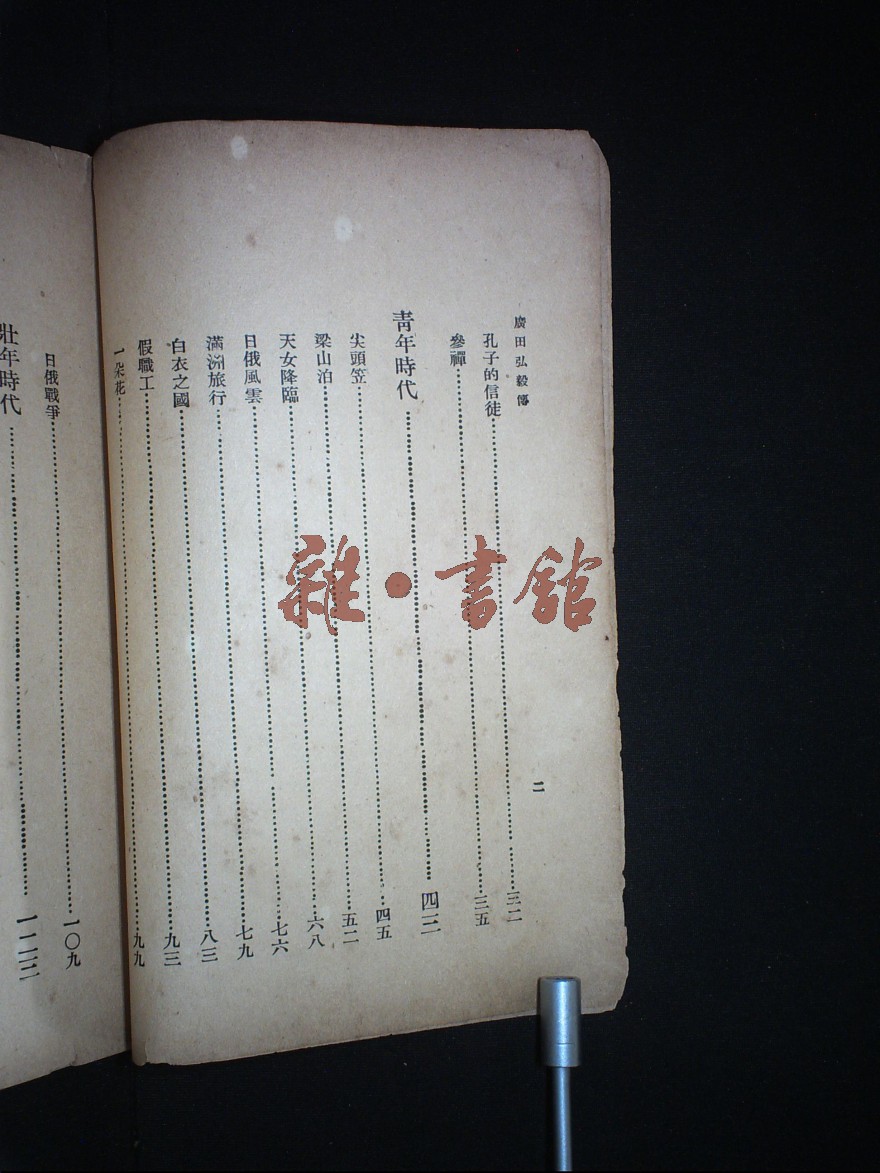 廣田弘毅傳
二
孔子的信徒……三二
參禪……三五
青年時代……四三
尖頭笠……四五
梁山泊……五二
天女降臨……六八
日俄風雲……七六
滿洲旅行……七九
白衣之國……八三
假職工……九三
一朵花……九九
日俄戰爭……一〇九
壯年時代……一二三
雜·書館